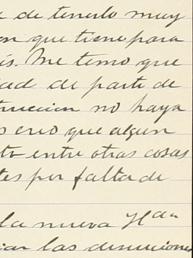 de tenerlo muy
en que tiene para
is. Me temo que
dad de parte de
truccion no haya
s creo que algun
entre otras cosas
tes por falta de
la nueva Hda
las